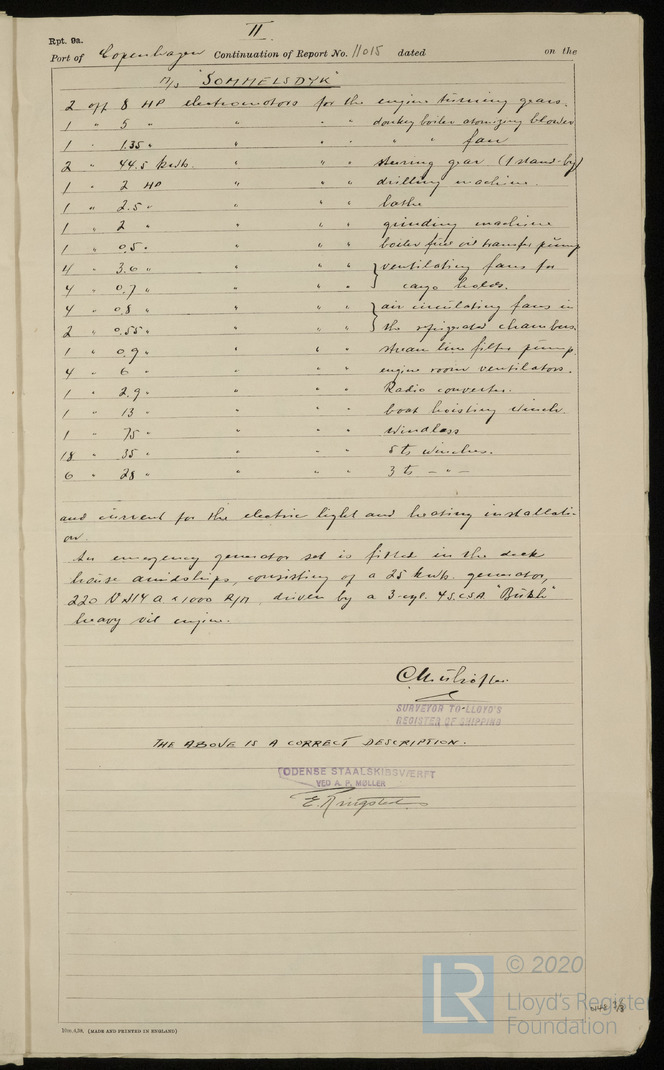 II
Rpt. 9a.
Port of Copenhagen Continuation of Report No. 11015 dated on the
M/S "SOMMELSDYK"
2 off 8 HP electromotors for the engine turning gears.
1 " 5 " " " " donkey boiler atomizing blower
1 " 1.35 " " " " " " fan
2 " 44.5 kwts. " " " steering gear (1 stand-by)
1 " 2 HP " " " drilling machine.
1 " 2.5 " " " " lathe
1 " 2 " " " " grinding machine
1 " 0.5 " " " " boiler fuel oil transfer pump
4 " 3.6 " " " " } ventilating fans for
4 " 0.7 " " " " cargo holds.
4 " 0.8 " " " " } air circulating fans in
2 " 0.55 " " " " the refrigerated chambers.
1 " 0.9 " " " " stream line filter pump.
4 " 6 " " " " engine room ventilators.
1 " 2.9 " " " " Radio converter.
1 " 13 " " " " boat hoisting winch
1 " 75 " " " " windlass
18 " 35 " " " " 5 ts winches.
6 " 28 " " " " 3 ts - " -
and current for the electric light and heating installati-
on.
An emergency generator set is fitted in the deck
house amidships, consisting of a 25 kwts. generator,
220 V 114 a x 1000 R/M, driven by a 3-cyl. 4S.CSA "Bükh"
heavy oil engine.
SURVEYOR TO LLOYD'S
REGISTER OF SHIPPING
THE ABOVE IS A CORRECT DESCRIPTION.
ODENSE STAALSKIBSVÆRFT
VED A. P. MØLLER
E. Ringsted
© 2020
LR
Lloyd's Register
Foundation
(MADE AND PRINTED IN ENGLAND)